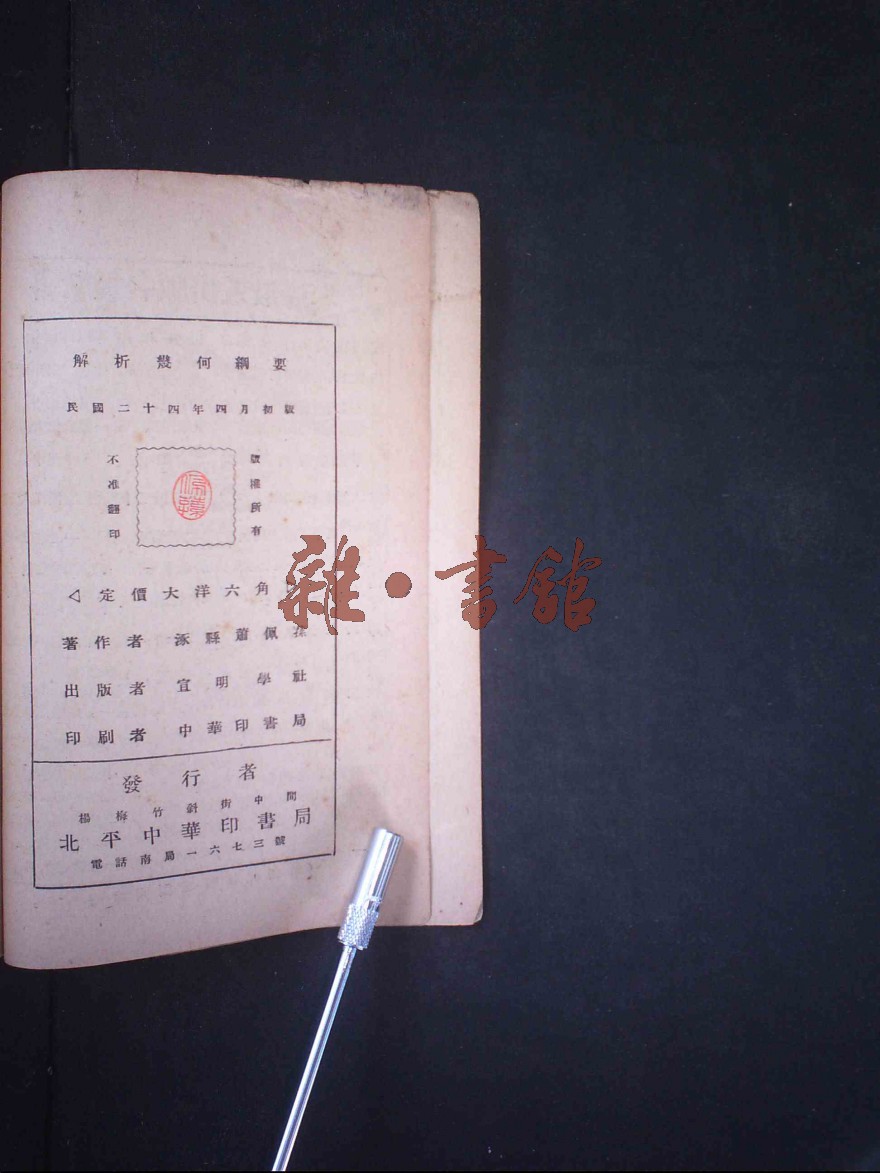 解析幾何綱要
民國二十四年四月初版
版權所有
不准翻印
定價大洋六角
著作者 涿縣蕭佩蓀
出版者 宜明學社
印刷者 中華印書局
發行者
楊梅竹斜街中間
北平中華印書局
電話南局一六七三號
雜·書館